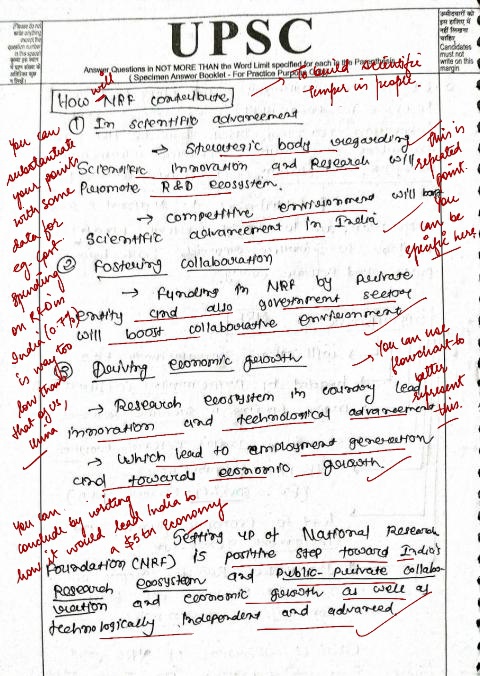 (Please do not write anything except the question number in this space)
UPSC
उम्मीदवारों को इस हाशिए में नहीं लिखना चाहिए
Candidates must not write on this margin
Answer Questions in NOT MORE THAN the Word Limit specified for each in the Parenthesis
( Specimen Answer Booklet - For Practice Purpose Only )
How will NRF contribute
→ To build scientific
temper in people.
① In scientific advancement
→ Stretegic body regarding
Scientific innovation and Research will
Promote R&D ecosystem.
→ competitive environment will boost
Scientific advancement in India
② Fostering collaboration
→ Funding in NRF by private
entity and also government sector
will boost collaborative environment
③ Driving economic growth
→ Research ecosystem in country lead
innovation and technological advancement
→ Which lead to employment generation
and towards economic growth.
Setting up of National Research
Foundation (NRF) is positive step toward India's
Research ecosystem and public-private collabo-
ration and economic growth as well as
technologically independent and advanced.
You can
substantiate
your points
with some
data for
eg. Govt.
spending
on R&D in
India (0.7%)
is way too
low than
that of US,
China
This is
repeated
point.
You
can be
specific here.
→ You can use
flowchart to
better
represent
this.
You can
conclude by writing
how it would lead India to
a $5 tn economy